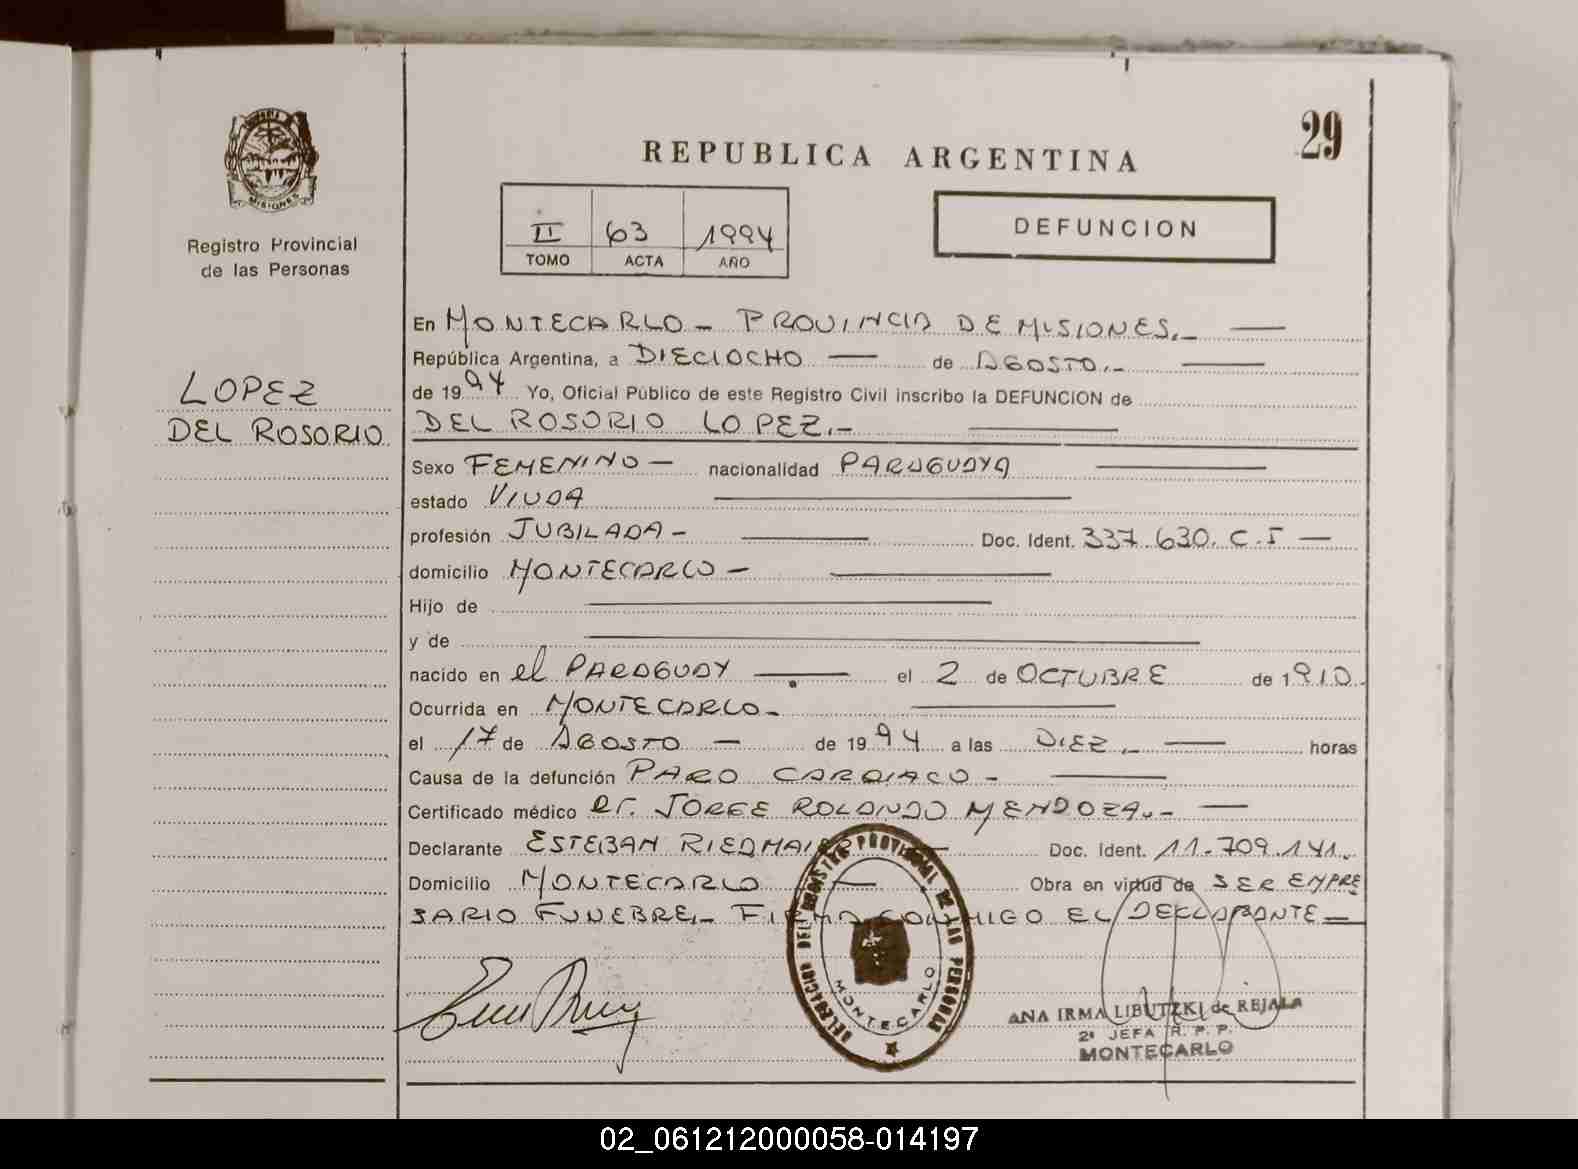 29
REPUBLICA ARGENTINA
MISIONES
II 63 1994
TOMO ACTA AÑO
DEFUNCION
Registro Provincial
de las Personas
LOPEZ
DEL ROSORIO
En MONTECARLO - PROVINCIA DE MISIONES.-
República Argentina, a DIECIOCHO de AGOSTO.-
de 1994 Yo, Oficial Público de este Registro Civil inscribo la DEFUNCION de
DEL ROSORIO LOPEZ.-
Sexo FEMENINO - nacionalidad PARAGUAYA
estado VIUDA
profesión JUBILADA - Doc. Ident. 337.630. C.I
domicilio MONTECARLO -
Hijo de
y de
nacido en el PARAGUAY el 2 de OCTUBRE de 1910
Ocurrida en MONTECARLO -
el 17 de AGOSTO - de 1994 a las DIEZ.- horas
Causa de la defunción PARO CARDIACO -
Certificado médico Dr. JORGE ROLANDO MENDOZA.-
Declarante ESTEBAN RIEDMAIER Doc. Ident. 11.709.141.
Domicilio MONTECARLO Obra en virtud de SER EMPRE
SARIO FUNEBRE.- FIRMA CONMIGO EL DECLARANTE
DELEGACION DEL REGISTRO PROVINCIAL DE LAS PERSONAS
MONTECARLO
ANA IRMA LIBUTZKI de REJALA
2ª JEFA R. P. P.
MONTECARLO
02_061212000058-014197